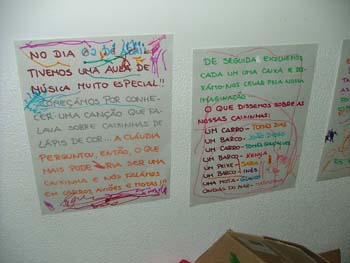 NO DIA 02 DE ABRIL
TIVEMOS UMA AULA DE
MÚSICA MUITO ESPECIAL!!
COMEÇÁMOS POR CONHE-
CER UMA CANÇÃO QUE FA-
LAVA SOBRE CAIXINHAS DE
LÁPIS DE COR... A CLÁUDIA
PERGUNTOU, ENTÃO, O QUE
MAIS PODERIA SER UMA
CAIXINHA E NÓS FALÁMOS
EM CARROS, AVIÕES E MOTAS!!
DE SEGUIDA ESCOLHEMOS
CADA UM UMA CAIXA E DEI-
XÁMO-NOS LEVAR PELA NOSSA
IMAGINAÇÃO
O QUE DISSEMOS SOBRE AS
NOSSAS CAIXINHAS:
UM CARRO - TOMÁS DIAS
UM BARCO - JOÃO DIOGO
UM CARRO - TOMÁS GONÇALVES
UM BARCO - KENYA
UM PEIXE - SARA
UM BARCO - INÊS
UMA MOTA -
ONDAS DO MAR -